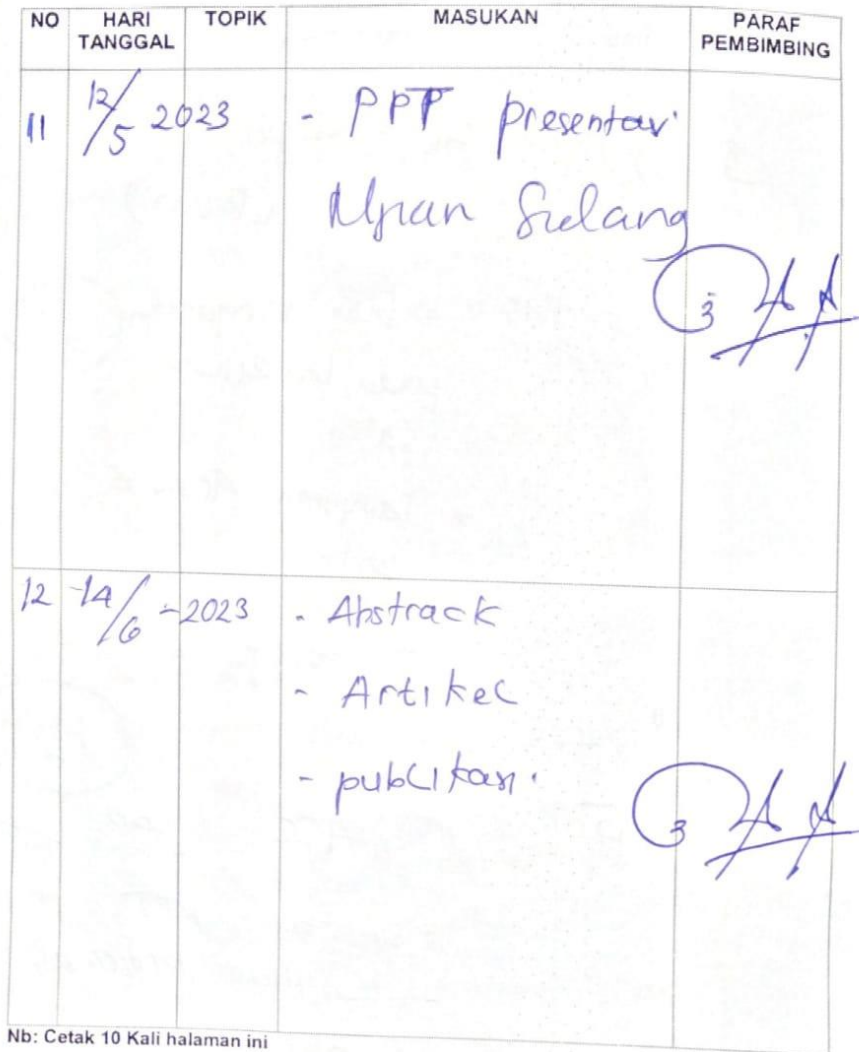 NO HARI TANGGAL TOPIK MASUKAN PARAF PEMBIMBING
11 12/5 2023 - PPT presentasi
Ujian Sidang
12 14/6 - 2023 - Abstrack
- Artikel
- publikasi.
Nb: Cetak 10 Kali halaman ini